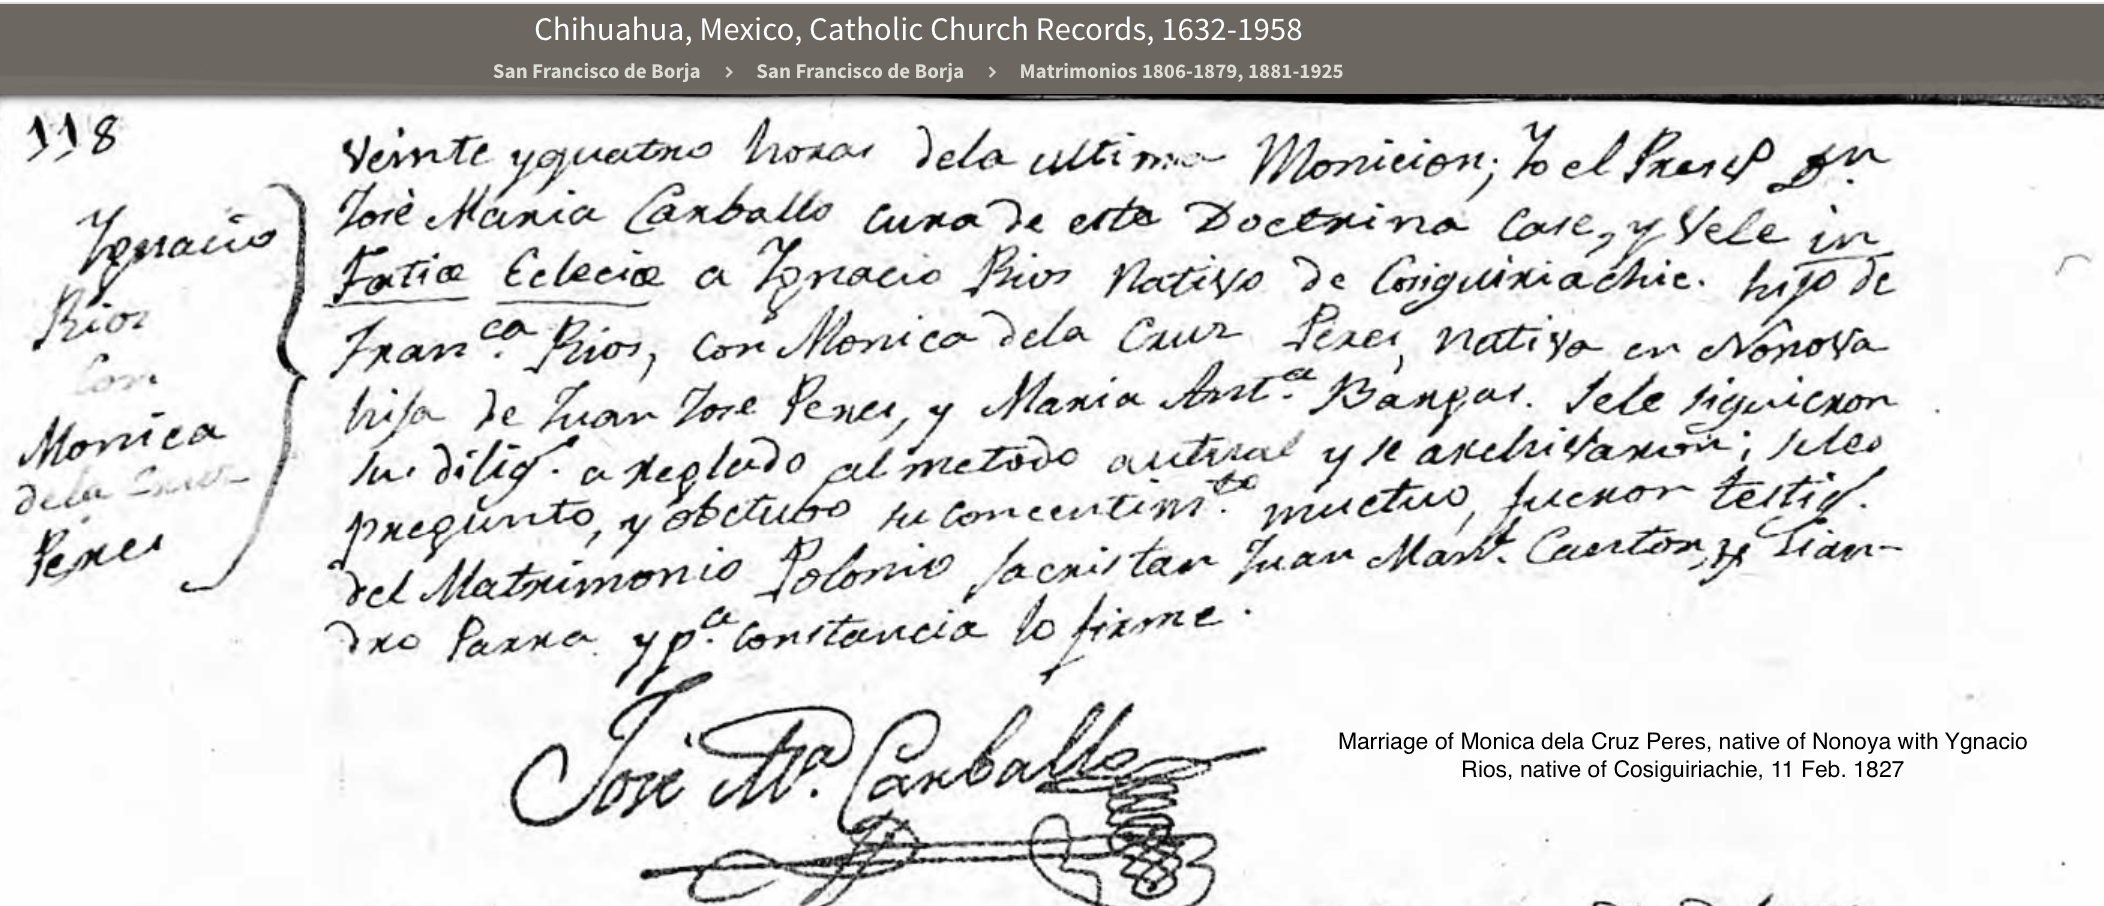 Chihuahua, Mexico, Catholic Church Records, 1632-1958
San Francisco de Borja > San Francisco de Borja > Matrimonios 1806-1879, 1881-1925
118
Ygnacio
Rios
con
Monica
dela Cruz
Peres
Veinte yquatro horas dela ultima Monicion; Yo el Presvo Dn.
José Maria Carballo cura de esta Doctrina Case, y Vele in
Fatiæ Ecleciæ a Ygnacio Rios Nativo de Cosiguiriachic. hijo de
Franca. Rios, con Monica dela Cruz Peres, nativa en Nonova
hija de Juan Jose Peres, y Maria Anta. Bargas. Sele siguieron
sus diligs. a regladо al metodo y se archivaron; seles
pregunto, y obctubo su concentimto. muctuo, fueron testigs.
del Matrimonio Polonio Sacristan Juan Manl. y Lian-
dro Parra ypa. constancia lo firme.
José Ma. Carballo
Marriage of Monica dela Cruz Peres, native of Nonoya with Ygnacio
Rios, native of Cosiguiriachie, 11 Feb. 1827